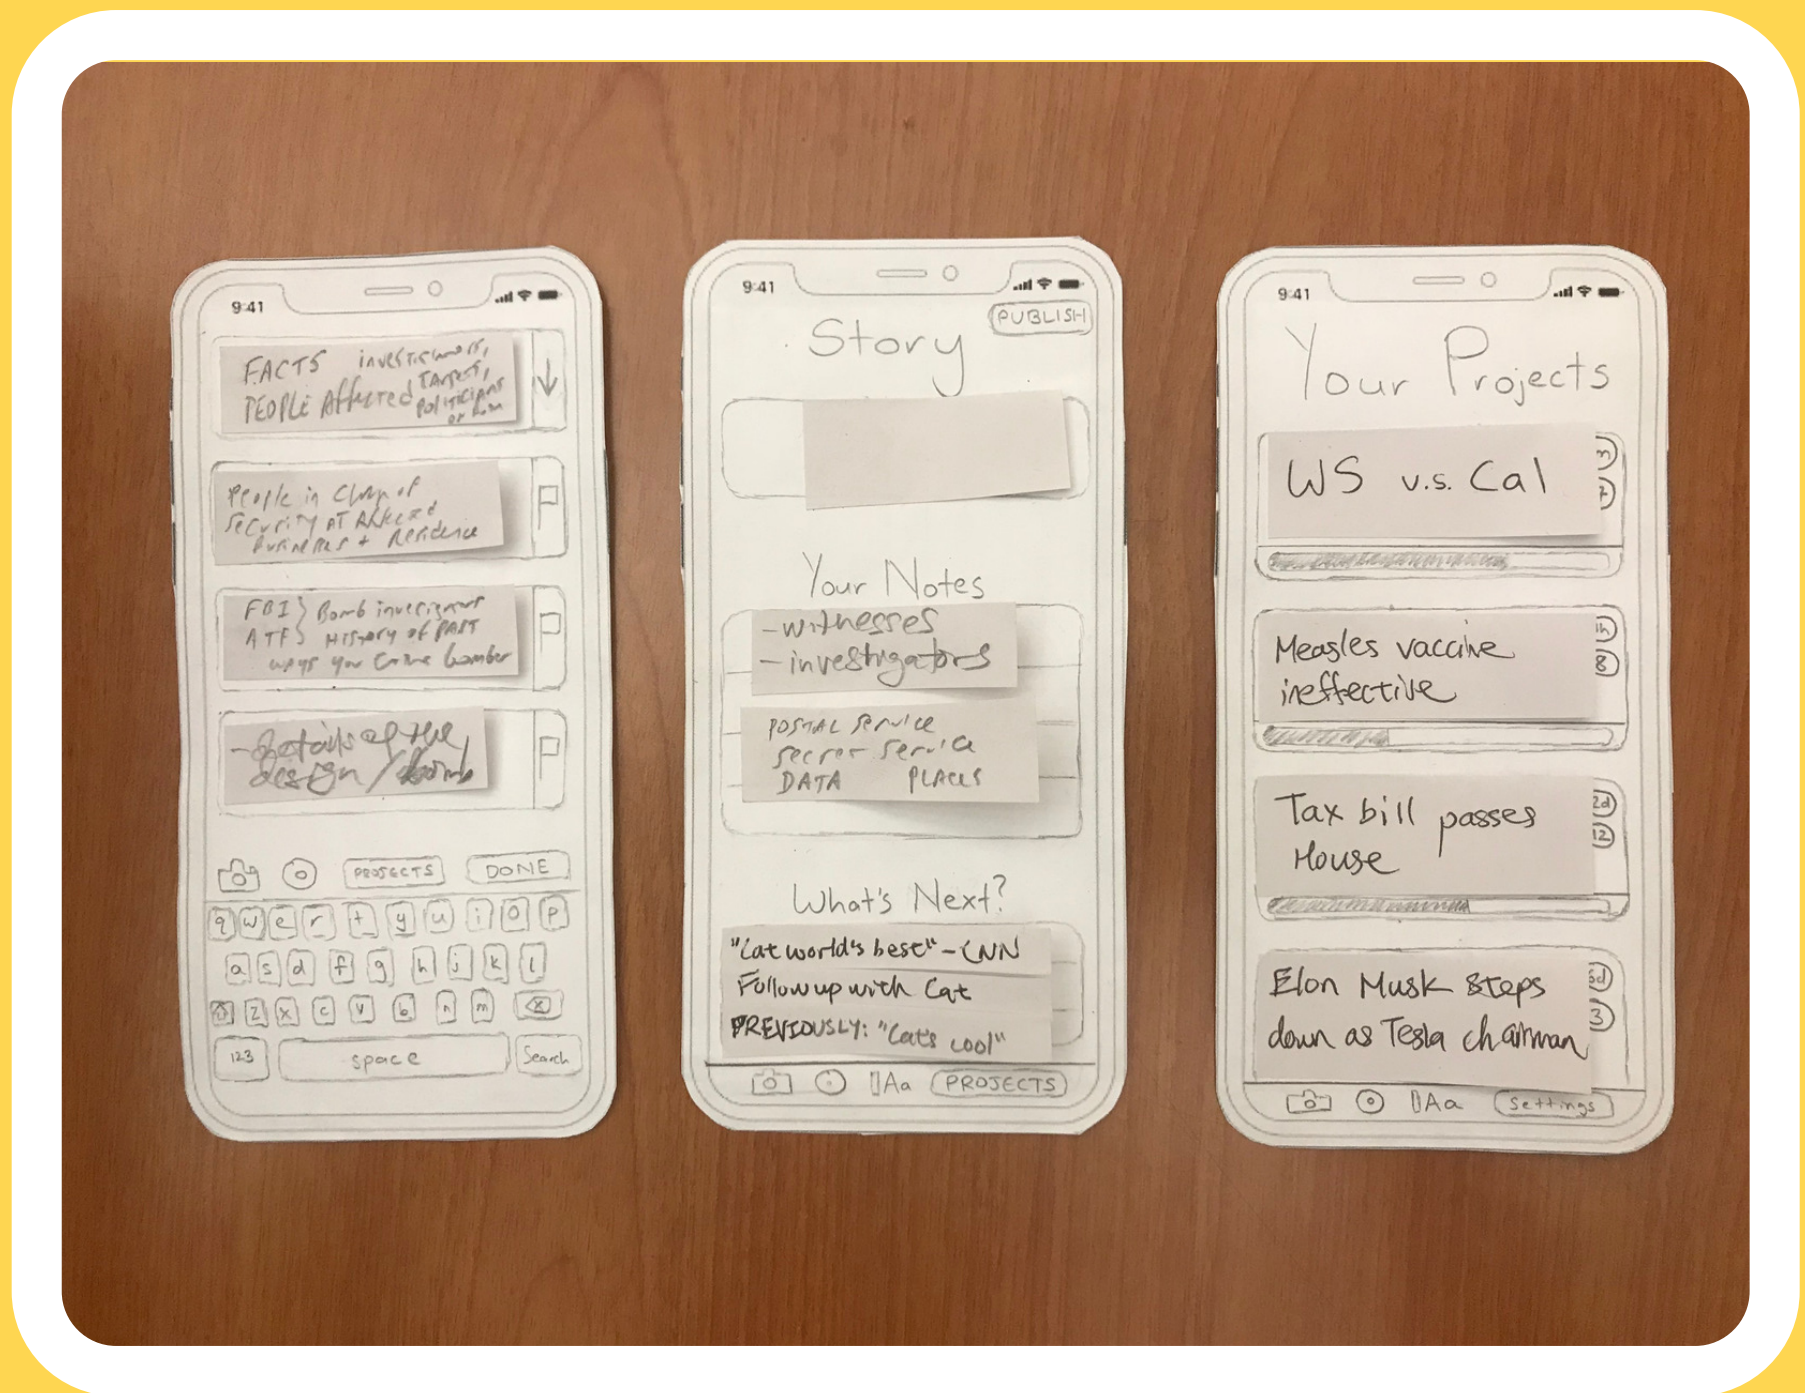 9:41
FACTS investigators,
PEOPLE Affected TARGETS,
POLITICIANS
People in Charge of
Security AT Affected
Business + Residence
FBI } Bomb investigators
ATF } HISTORY of PAST
ways you
bomber
- details of the
design / bomb
PROJECTS DONE
q w e r t y u i o p
a s d f g h j k l
z x c v b n m
123 space Search
9:41
PUBLISH
Story
Your Notes
- witnesses
- investigators
POSTAL Service
secret service
DATA PLACES
What's Next?
"Cat world's best" - CNN
Follow up with Cat
PREVIOUSLY: "Cat's cool"
Aa PROJECTS
9:41
Your Projects
WS v.s. Cal
Measles vaccine
ineffective
1h
8
Tax bill passes
House
2d
12
Elon Musk steps
down as Tesla chairman
3
Aa Settings